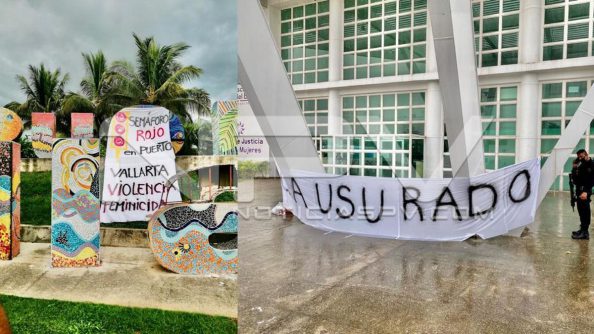 SEMAFORO
ROJO
EN PUERTO
VALLARTA
VIOLENCIA
FEMINICIDA
de Justicia
Mujeres
AUSURADO
NOTICIASPV.COM